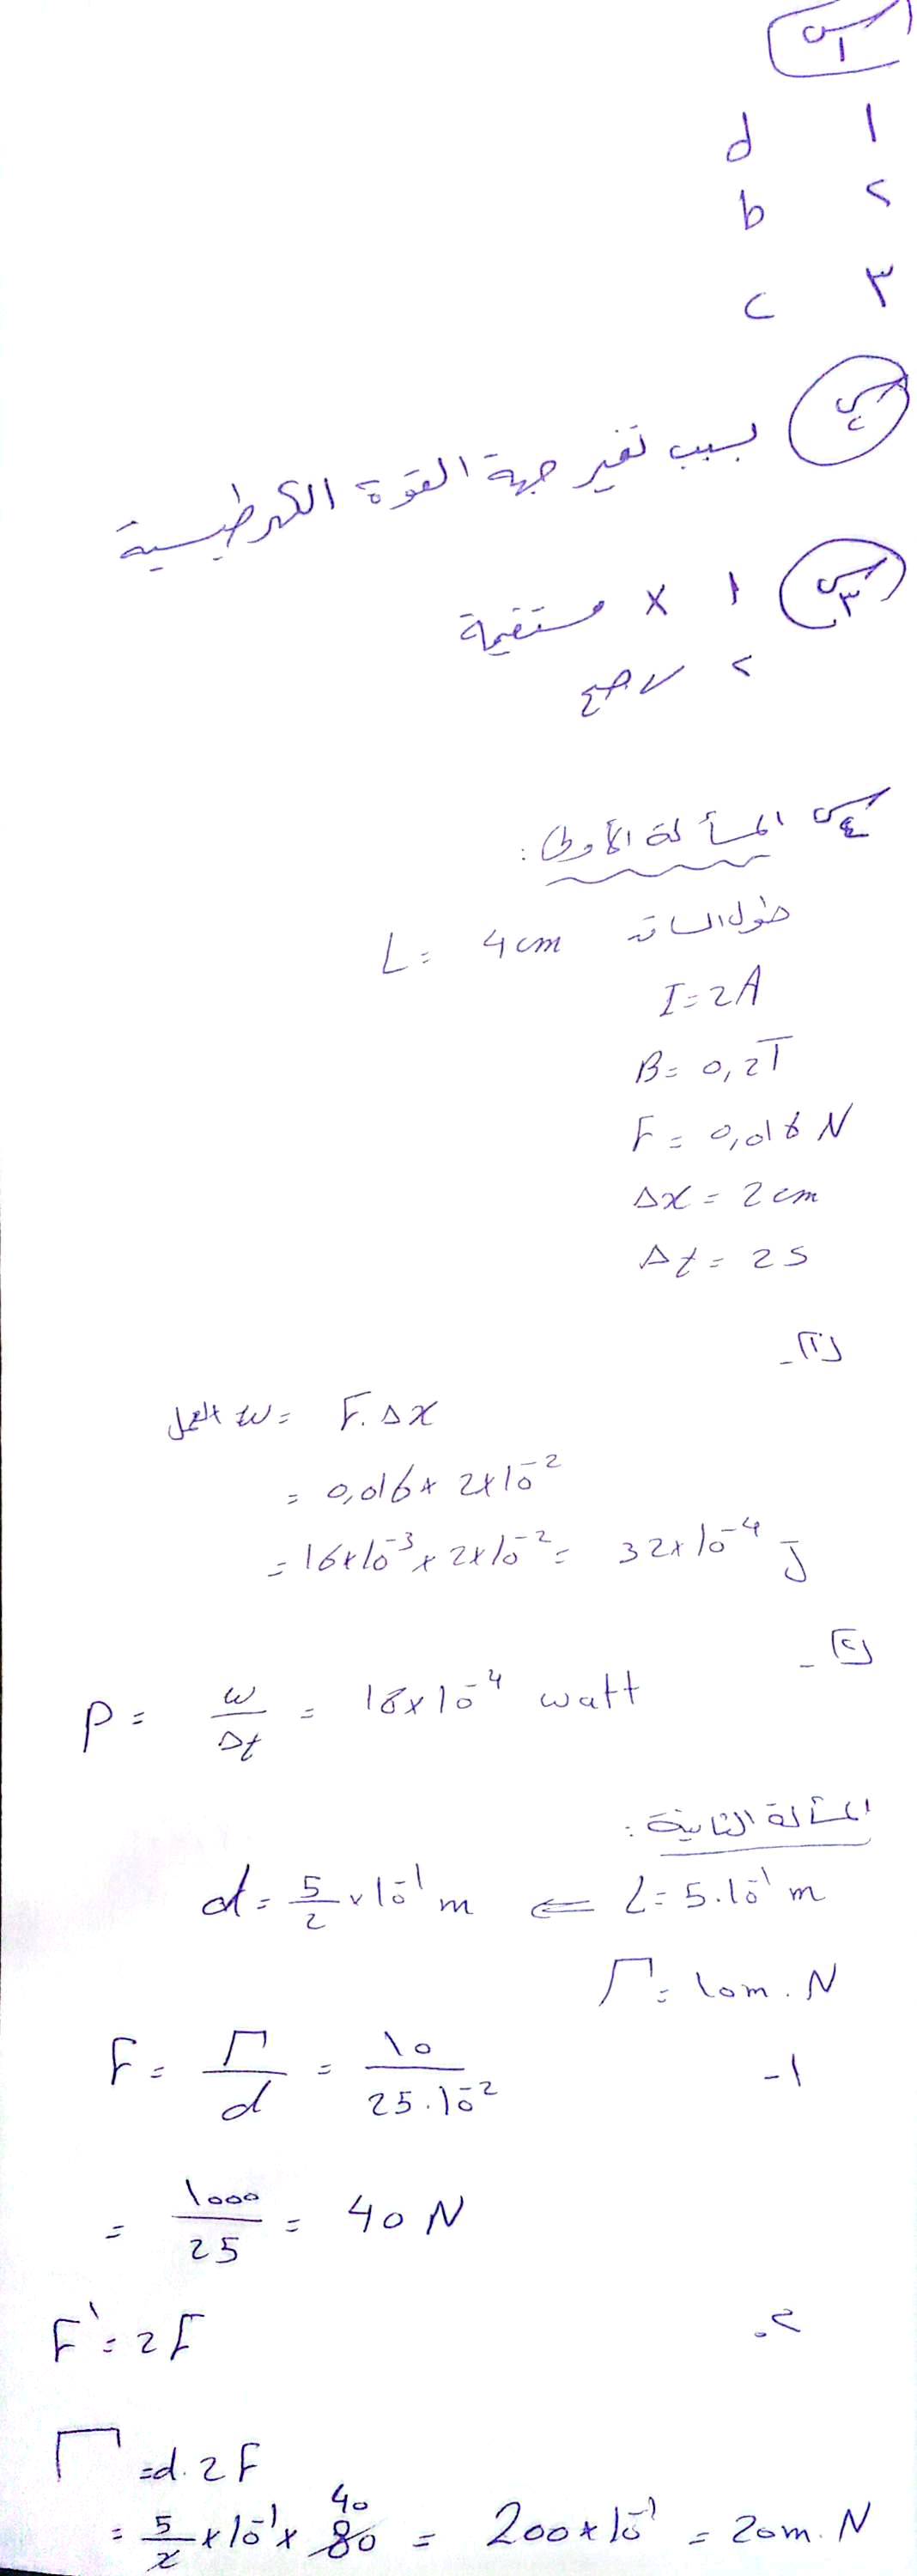 س١
١ d
٢ b
٣ c
س٢ بسبب تغير جهة القوة الكهرطيسية
س٣ ١ × مستقيمة
٢ ✓ صح
س٤ المسألة الأولى:
طول الساق L = 4 cm
I = 2A
B = 0,2T
F = 0,016 N
Δx = 2 cm
Δt = 2 s
-(١)
العمل W = F. Δx
= 0,016 × 2×10⁻²
= 16×10⁻³ × 2×10⁻² = 32×10⁻⁴ J
-(٢)
P = W/Δt = 16×10⁻⁴ watt
المسألة الثانية:
L = 5.10⁻¹ m ⇐ d = 5/2 × 10⁻¹ m
Γ = 10 m. N
-١
F = Γ/d = 10/25.10⁻²
= 1000/25 = 40 N
٢.
F' = 2F
Γ = d. 2F
= 5/2 × 10⁻¹ × 80 40 = 200×10⁻¹ = 20 m. N